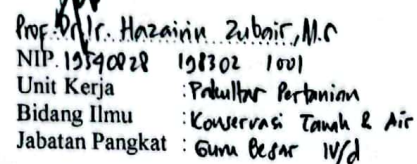 Prof. Dr. Ir. Hazairin Zubair, M.S
NIP. 19540828 198302 1001
Unit Kerja : Fakultas Pertanian
Bidang Ilmu : Konservasi Tanah & Air
Jabatan Pangkat : Guru Besar IV/d